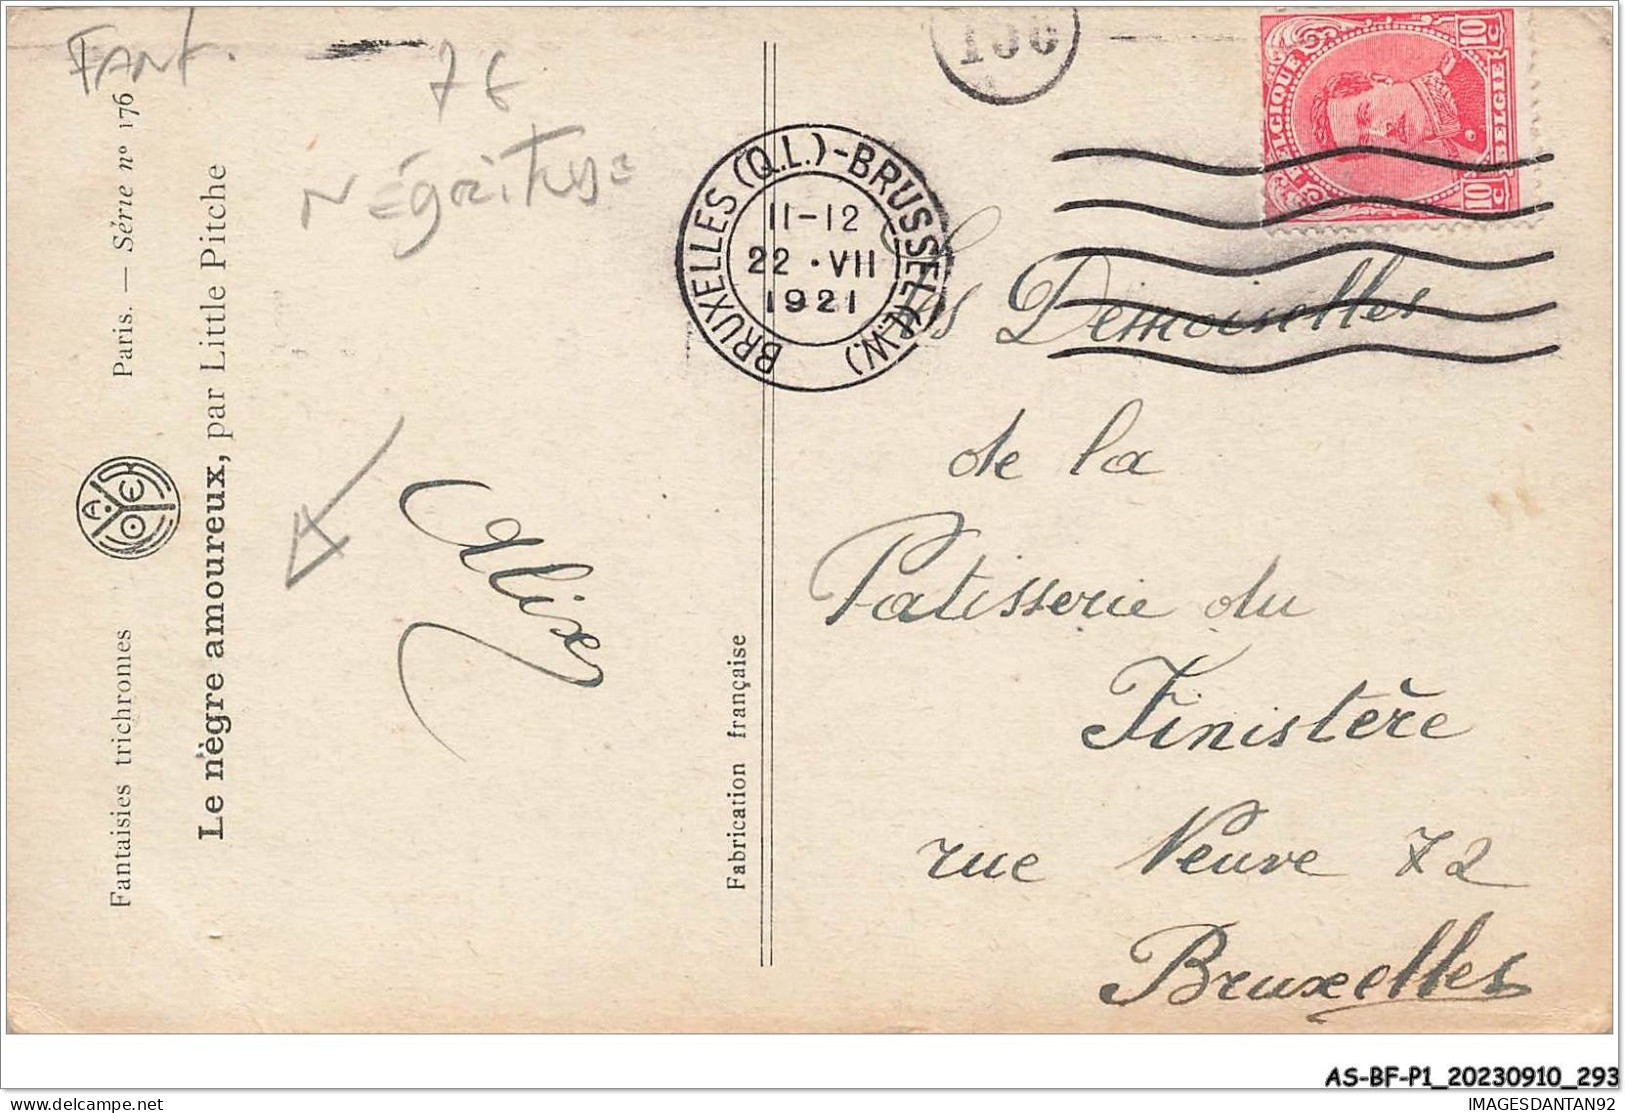 FANT.
7 €
Négritude
Fantaisies trichromes
Paris. — Série nº 176
Le nègre amoureux, par Little Pitche
Alix
Fabrication française
BRUXELLES (Q.L.) - BRUSSEL (L.W.)
11-12
22 · VII
1921
BELGIQUE
BELGIE
10 C
10 C
Les Demoiselles
de la
Patisserie du
Finistère
rue Neuve 72
Bruxelles
AS-BF-P1_20230910_293
www.delcampe.net
IMAGESDANTAN92